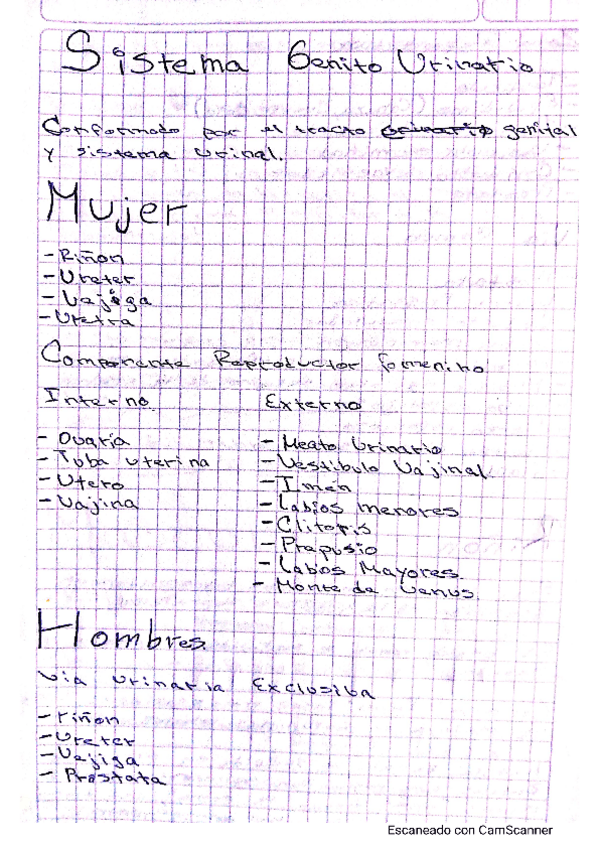 Sistema Genito Urinario
Conformado por el tracto genital
y sistema Urinal.
Mujer
- Riñon
- Ureter
- Vajiga
- Uretra
Componente Reproductor femenino
Interno
Externo
- Ovario
- Tuba uterina
- Utero
- Vajina
- Meato Urinario
- Vestibulo Vajinal
- Imen
- Labios menores
- Clitoris
- Prapusio
- Labios Mayores.
- Monte de Venus.
Hombres
Via urinaria Exclusiva
- riñon
- Ureter
- Vejiga
- Prostata
Escaneado con CamScanner